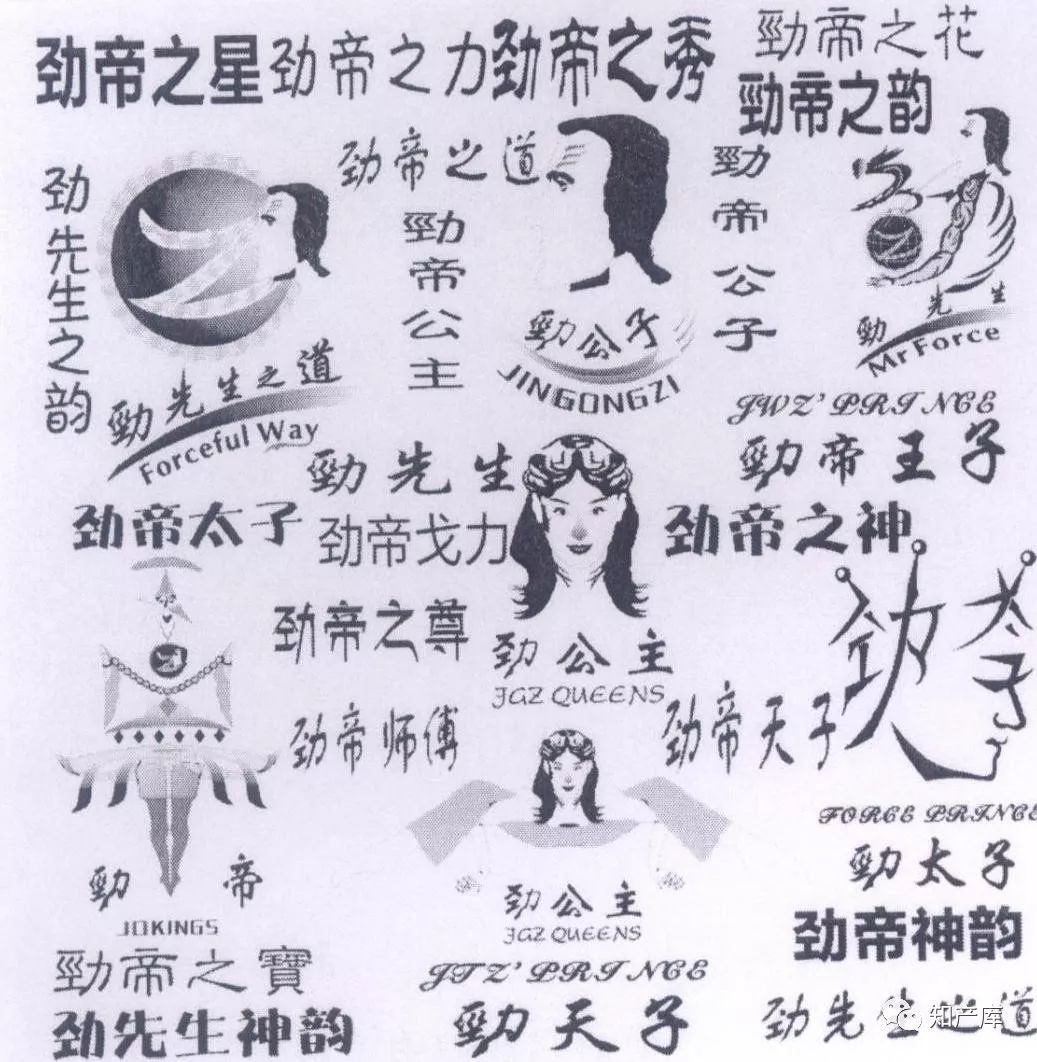 劲帝之星
劲帝之力
劲帝之秀
勁帝之花
勁帝之韵
劲先生之韵
劲帝之道
勁帝公主
勁帝公子
勁公子
JINGONGZI
勁先生
Mr Force
勁先生之道
Forceful Way
JWZ' PRINCE
勁帝王子
勁先生
劲帝太子
劲帝戈力
劲帝之神
劲帝之尊
劲公主
JGZ QUEENS
劲太子
劲帝师傅
劲帝天子
FORCE PRINCE
勁太子
勁帝
JDKINGS
劲公主
JGZ QUEENS
劲帝神韵
勁帝之寶
JTZ' PRINCE
劲先生神韵
勁天子
劲先生之道
知产库